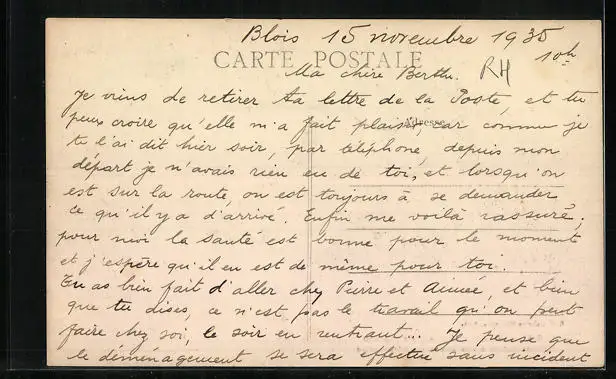 Blois 15 novembre 1935
CARTE POSTALE
10h
Ma chère Berthe. RH
Je viens de retirer ta lettre de la Poste, et tu
Adresse
peux croire qu'elle m'a fait plaisir, car comme je
te l'ai dit hier soir, par téléphone, depuis mon
départ je n'avais rien eu de toi, et lorsqu'on
est sur la route, on est toujours à se demander
ce qu'il y a d'arrivé. Enfin me voilà rassuré ;
pour moi la santé est bonne pour le moment
et j'espère qu'il en est de même pour toi.
Tu as bien fait d'aller chez Pierre et Aimée, et bien
que tu dises, ce n'est pas le travail qu'on peut
faire chez soi, le soir en rentrant... Je pense que
le déménagement se sera effectué sans incident